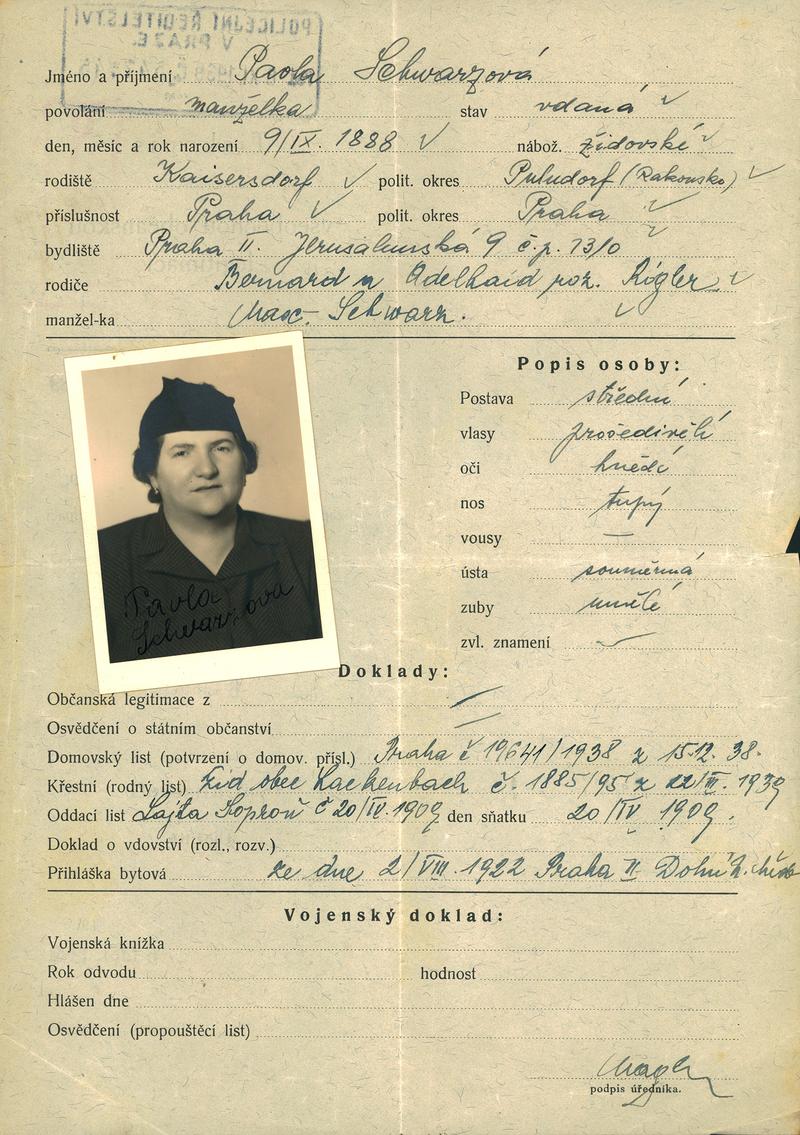 POLICEJNÍ ŘEDITELSTVÍ
V PRAZE.
Jméno a příjmení Pavla Schwarzová
povolání manželka stav vdaná
den, měsíc a rok narození 9/IX. 1888 nábož. židovské
rodiště Kaisersdorf polit. okres Puludorf (Rakousko)
příslušnost Praha polit. okres Praha
bydliště Praha II. Jerusalemská 9 č.p. 1310
rodiče Bernard a Adelhaid roz. Rigler
manžel-ka Max. Schwarz.
Popis osoby:
Postava střední
vlasy prošedivělé
oči hnědé
nos tupý
vousy —
ústa souměrná
zuby umělé
zvl. znamení
Pavla
Schwarzova
Doklady:
Občanská legitimace z
Osvědčení o státním občanství
Domovský list (potvrzení o domov. přísl.) Praha č 19641/1938 z 15.12. 38.
Křestní (rodný list) žid obec Lackenbach č. 1885/95 z 22/III. 1939
Oddací list Lajta Soproň č 20/IV. 1909 den sňatku 20/IV 1909.
Doklad o vdovství (rozl., rozv.)
Přihláška bytová ze dne 2/VIII. 1922 Praha II
Vojenský doklad:
Vojenská knížka
Rok odvodu hodnost
Hlášen dne
Osvědčení (propouštěcí list)
podpis úředníka.